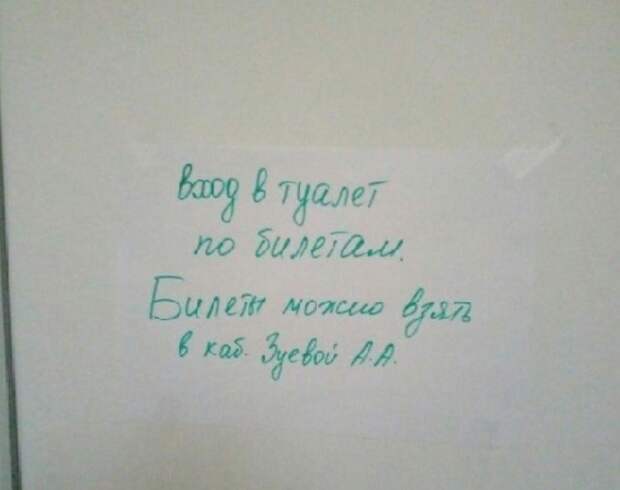 вход в туалет
по билетам.
Билеты можно взять
в каб. Зуевой А.А.